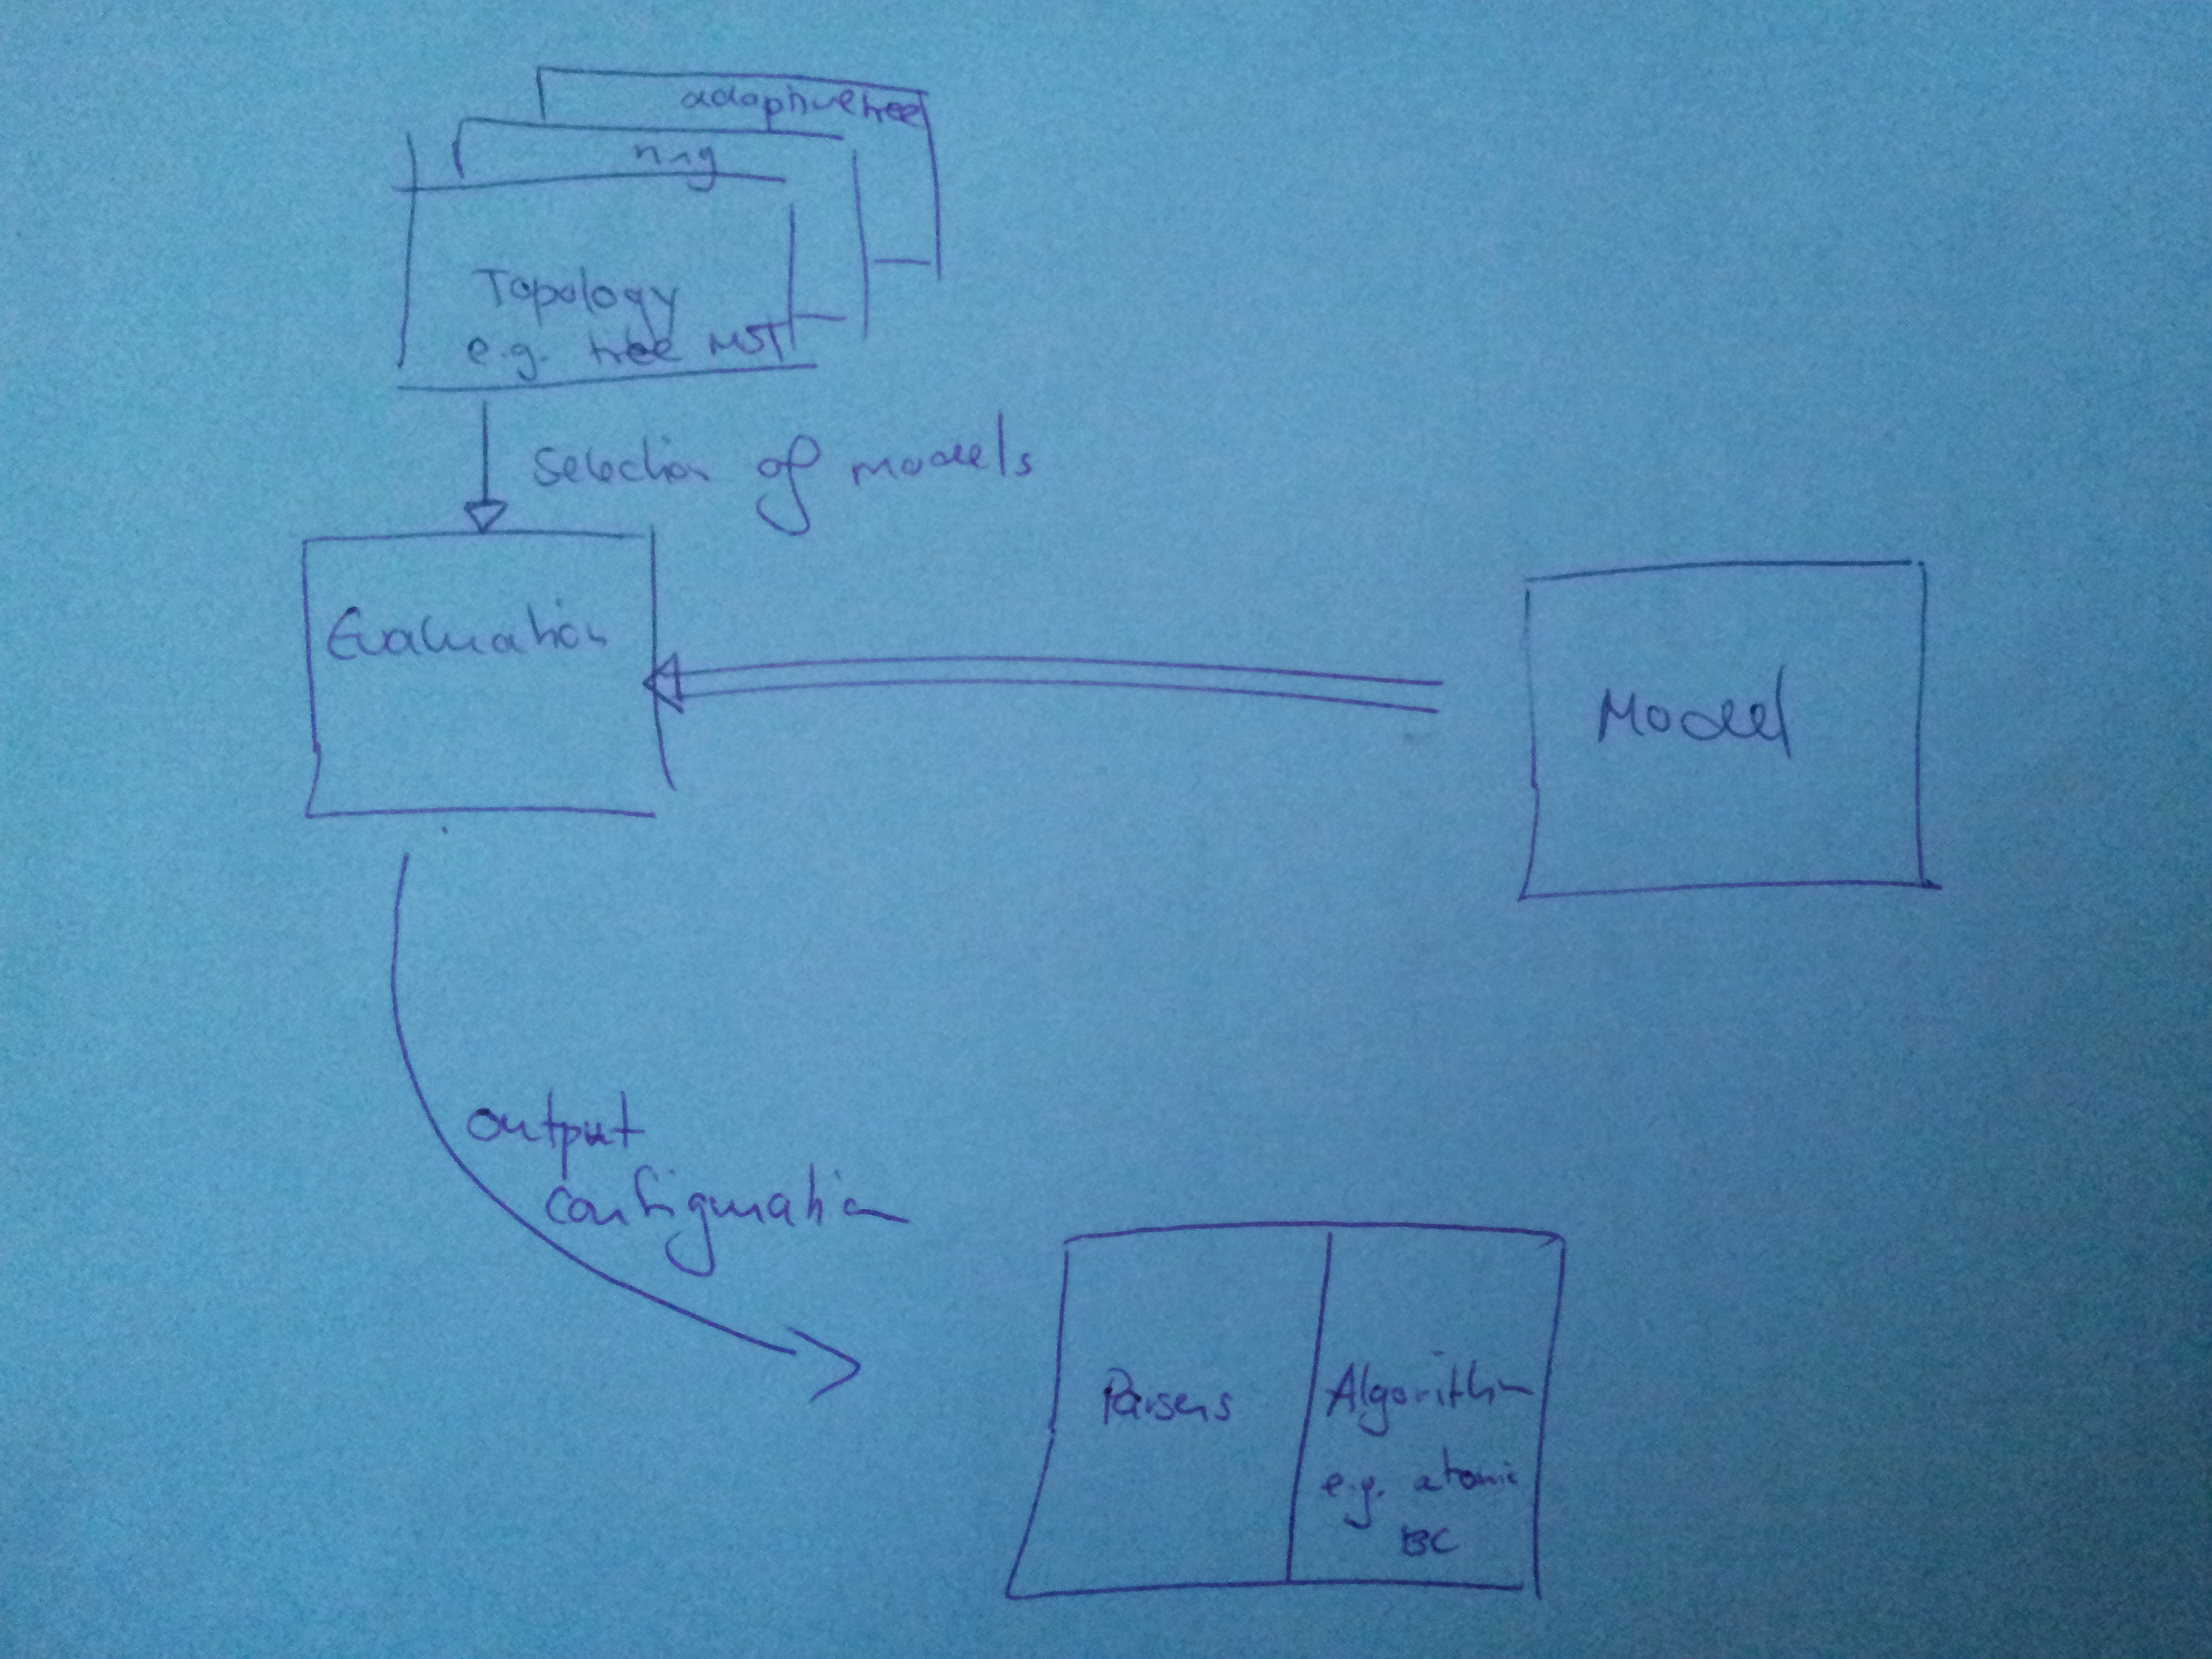 adaptive tree
ring
Topology
e.g. tree MST
Selection of models
Evaluation
Model
output
configuration
Parsers
Algorithm
e.g. atomic
BC